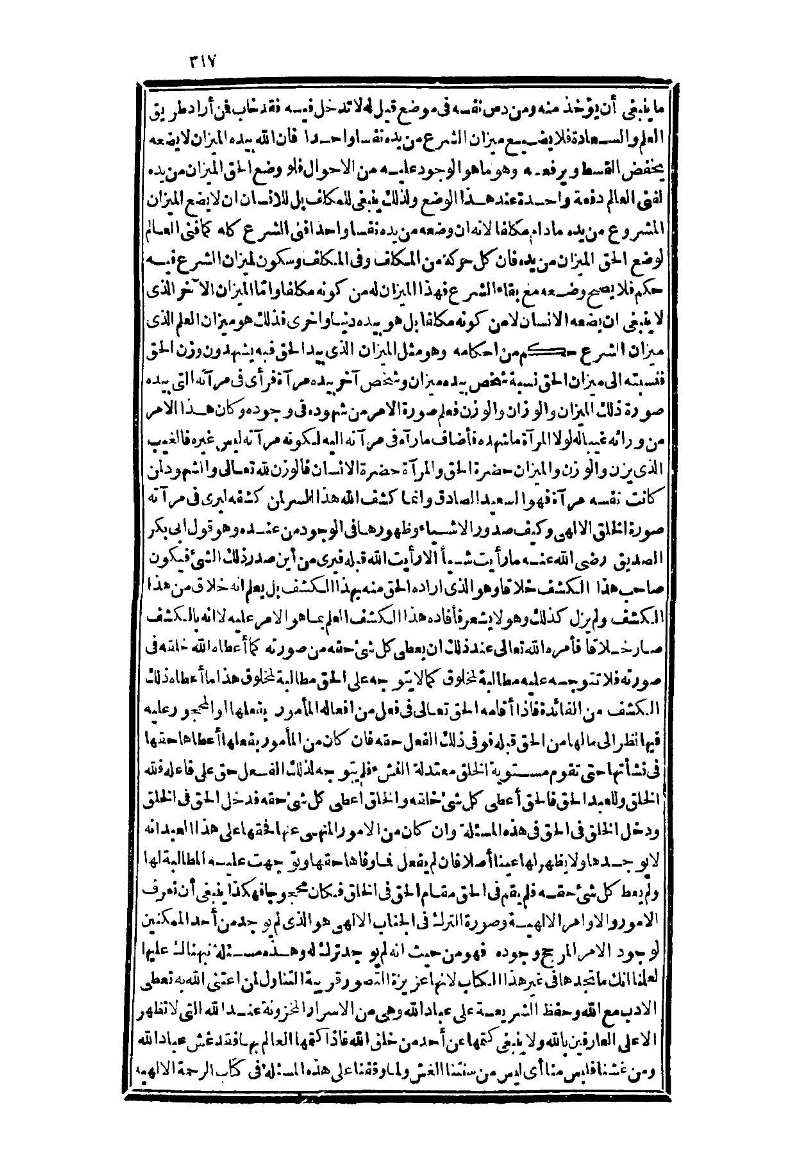 ٣١٧
ما ينبغى أن يؤخذ منه ومن دس نفسه فى موضع قيل له لا تدخل فيه فقد خاب فمن أراد طريق
العلم والسعادة فلا يضيع ميزان الشرع من يده نفسا واحدا فان الله بيده الميزان لا يضعه
يخفض القسط ويرفعه وهو ماهو الوجود عليه من الاحوال فلو وضع الحق الميزان من يده
لفنى العالم دفعة واحدة عند هذا الوضع ولذلك ينبغى للمكلف بل للانسان ان لا يضع الميزان
المشروع من يده مادام مكلفا لانه ان وضعه من يده نفسا واحدا فنى الشرع كله كما فنى العالم
لو وضع الحق الميزان من يده فان كل حركة من المكلف وفى المكلف وسكون لميزان الشرع فيه
حكم فلا يصح وضعه مع بقاء الشرع فهذا الميزان له من كونه مكلفا واما الميزان الآخر الذى
لا ينبغى ان يضعه الانسان لا من كونه مكلفا بل هو بيده دنيا واخرى فذلك هو ميزان العلم الذى
ميزان الشرع حكم من احكامه وهو مثل الميزان الذى بيد الحق فبه يشهد وزن الحق
فنسبته الى ميزان الحق نسبة شخص بيده ميزان وشخص آخر بيده مرآة فرأى فى مرآته التى بيده
صورة ذلك الميزان والوزان والوزن فعلم صورة الامر من شهوده فى وجوده وكان هذا الامر
من ورائه غيبا له لولا المرآة ما شهده فأضاف ما رآه فى مرآته اليه لكونه مرآته ليس غيره فالغيب
الذى يزن والوزن والميزان حضرة الحق والمرآة حضرة الانسان فالوزن لله تعالى والشهود لمن
كانت نفسه مرآة فهو السعيد الصادق وانما كشف الله هذا السر لمن كشفه ليرى فى مرآته
صورة الخلق الالهى وكيف صدور الاشياء وظهورها فى الوجود من عنده وهو قول ابى بكر
الصديق رضى الله عنه ما رأيت شيأ الا رأيت الله قبله فيرى من أين صدر ذلك الشئ فيكون
صاحب هذا الكشف خلاقا وهو الذى اراده الحق منه بهذا الكشف بل يعلم انه خلاق من هذا
الكشف ولم يزل كذلك وهو لا يشعر فأفاده هذا الكشف العلم بما هو الامر عليه لا انه بالكشف
صار خلاقا فأمره الله تعالى عند ذلك ان يعطى كل شئ حقه من صورته كما أعطاه الله خلقه فى
صورته فلا تتوجه عليه مطالبة لمخلوق كما لا يتوجه على الحق مطالبة لمخلوق هذا ما أعطاه ذلك
الكشف من الفائدة فاذا أقامه الحق تعالى فى فعل من افعاله المأمور بفعلها او المحجور عليه
فيها نظر الى مالها من الحق قبله فوفى ذلك الفعل حقه فان كان من المأمور بفعلها أعطاها حقها
فى نشأتها حتى تقوم مستوية الخلق معتدلة النشئ فلم يتوجه لذلك الفعل حق على فاعله فلله
الخلق وللعبد الحق فالحق أعطى كل شئ خلقه والخلق اعطى كل شئ حقه فدخل الحق فى الخلق
ودخل الخلق فى الحق فى هذه المسئلة وان كان من الامور المنهى عنها فحقها على هذا العبد انه
لا يوجدها ولا يظهر لها عينا أصلا فان لم يفعل فما وفاها حقها وتوجهت عليه المطالبة لها
ولم يعط كل شئ حقه فلم يقم فى الحق مقام الحق فى الخلق فكان محجوجا فهكذا ينبغى أن تعرف
الامور والاوامر الالهية وصورة الترك فى الجناب الالهى هو الذى لم يوجد من أحد الممكنين
لوجود الامر المرجح وجوده فهو من حيث انه لم يوجد ترك له وهذه مسئلة نبهناك عليها
لعلمنا انك ما تجدها فى غير هذا الكتاب لانها عزيزة التصور قريبة التناول لمن اعتنى الله به تعطى
الادب مع الله وحفظ الشريعة على عباد الله وهى من الاسرار المخزونة عند الله التى لا تظهر
الا على العارفين بالله ولا ينبغى كتمها عن أحد من خلق الله فاذا كتمها العالم بها فقد غش عباد الله
ومن غشنا فليس منا أى ليس من سنتنا الغش ولما وقفنا على هذه المسئلة فى كتاب الرحمة الالهية